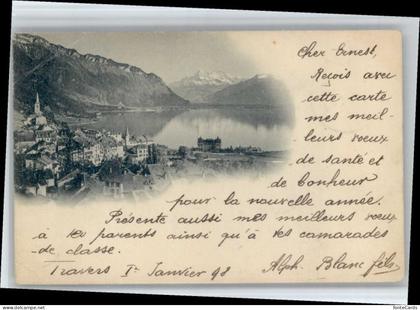 Cher Ernest,
Reçois avec
cette carte
mes meil-
leurs vœux
de santé et
de bonheur
pour la nouvelle année.
Présente aussi mes meilleurs vœux
à tes parents ainsi qu'à tes camarades
de classe.
Travers 1er Janvier 98 Alph. Blanc fils